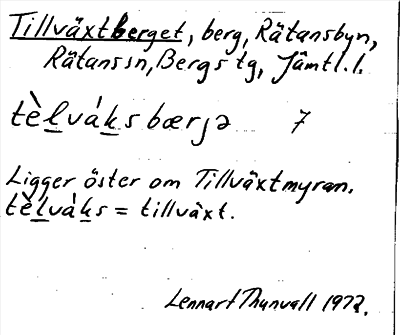 Tillväxtberget, berg, Rätansbyn,
Rätans sn, Bergs tg, Jämtl. l.
tὲl̲vák̲s bærjə 7
Ligger öster om Tillväxtmyran.
tὲl̲vák̲s = tillväxt.
Lennart Thunvall 1972.